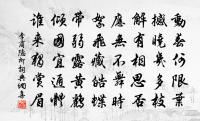 動春何限葉
撼曉幾多枝
解有相思否
應無不舞時
絮飛藏皓蝶
帶弱露黃鸝
傾國宜通體
誰來獨賞眉
李商隱柳